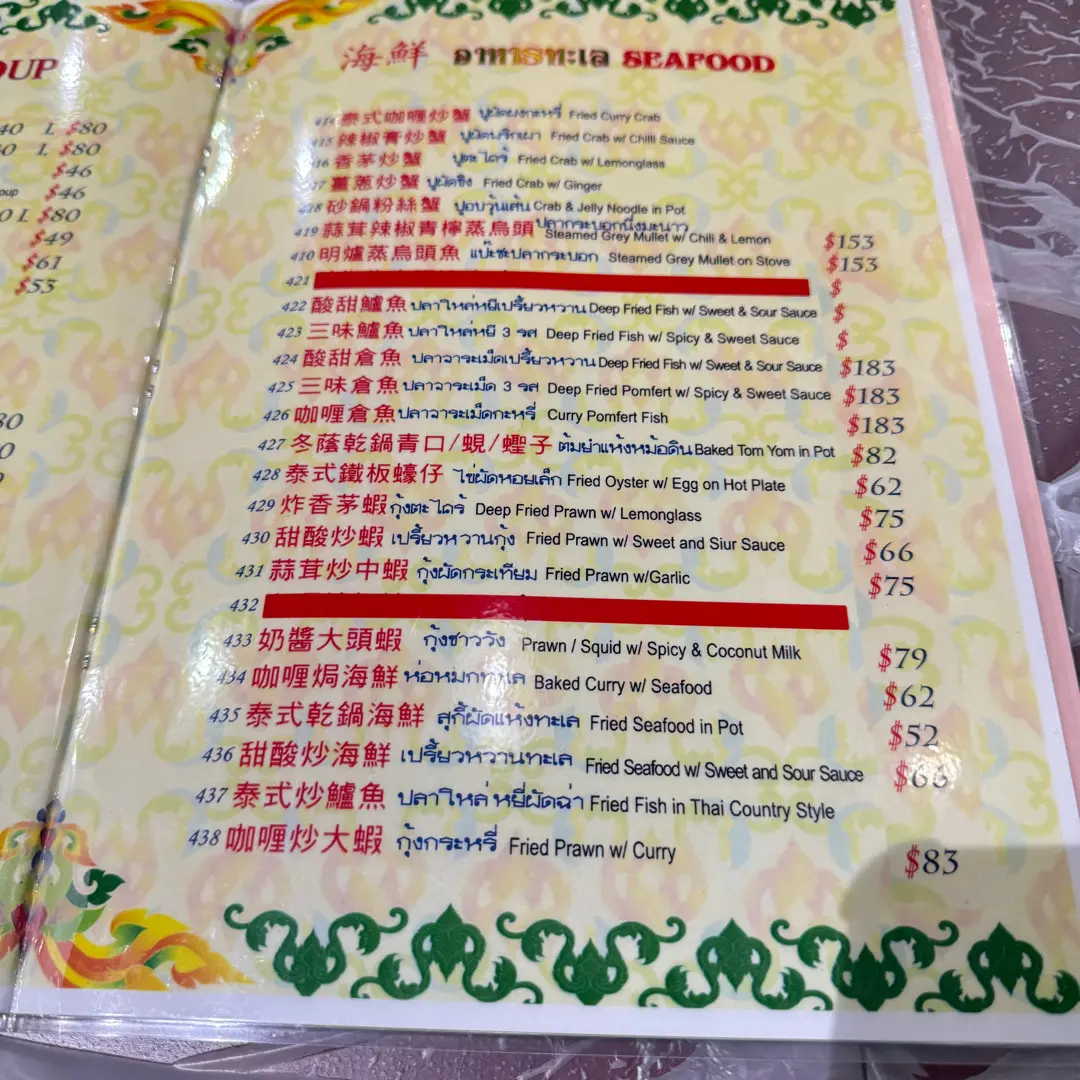 OUP
40 L $80
0 L $80
$46
oup $46
0 L $80
$49
$61
$53
80
0
海鮮 อาหารทะเล SEAFOOD
414 泰式咖喱炒蟹 ปูผัดผงกะหรี่ Fried Curry Crab
415 辣椒膏炒蟹 ปูผัดพริกเผา Fried Crab w/ Chilli Sauce
416 香茅炒蟹 ปูตะไคร้ Fried Crab w/ Lemonglass
417 薑蔥炒蟹 ปูผัดขิง Fried Crab w/ Ginger
418 砂鍋粉絲蟹 ปูอบวุ้นเส้น Crab & Jelly Noodle in Pot
419 蒜茸辣椒青檸蒸烏頭 ปลากระบอกนึ่งมะนาว Steamed Grey Mullet w/ Chili & Lemon $153
410 明爐蒸烏頭魚 แป๊ะซะปลากระบอก Steamed Grey Mullet on Stove $153
421 $
422 酸甜鱸魚 ปลาใหล่หยีเปรี้ยวหวาน Deep Fried Fish w/ Sweet & Sour Sauce $
423 三味鱸魚 ปลาใหล่หยี 3 รส Deep Fried Fish w/ Spicy & Sweet Sauce $
424 酸甜倉魚 ปลาจาระเม็ดเปรี้ยวหวาน Deep Fried Fish w/ Sweet & Sour Sauce $183
425 三味倉魚 ปลาจาระเม็ด 3 รส Deep Fried Pomfert w/ Spicy & Sweet Sauce $183
426 咖喱倉魚 ปลาจาระเม็ดกะหรี่ Curry Pomfert Fish $183
427 冬蔭乾鍋青口/蜆/蟶子 ต้มยำแห้งหม้อดิน Baked Tom Yom in Pot $82
428 泰式鐵板蠔仔 ไข่ผัดหอยเล็ก Fried Oyster w/ Egg on Hot Plate $62
429 炸香茅蝦 กุ้งตะไคร้ Deep Fried Prawn w/ Lemonglass $75
430 甜酸炒蝦 เปรี้ยวหวานกุ้ง Fried Prawn w/ Sweet and Siur Sauce $66
431 蒜茸炒中蝦 กุ้งผัดกระเทียม Fried Prawn w/Garlic $75
432
433 奶醬大頭蝦 กุ้งชาววัง Prawn / Squid w/ Spicy & Coconut Milk $79
434 咖喱焗海鮮 ห่อหมกทะเล Baked Curry w/ Seafood $62
435 泰式乾鍋海鮮 สุกี้ผัดแห้งทะเล Fried Seafood in Pot $52
436 甜酸炒海鮮 เปรี้ยวหวานทะเล Fried Seafood w/ Sweet and Sour Sauce $66
437 泰式炒鱸魚 ปลาใหล่หยี่ผัดฉ่า Fried Fish in Thai Country Style
438 咖喱炒大蝦 กุ้งกระหรี่ Fried Prawn w/ Curry $83